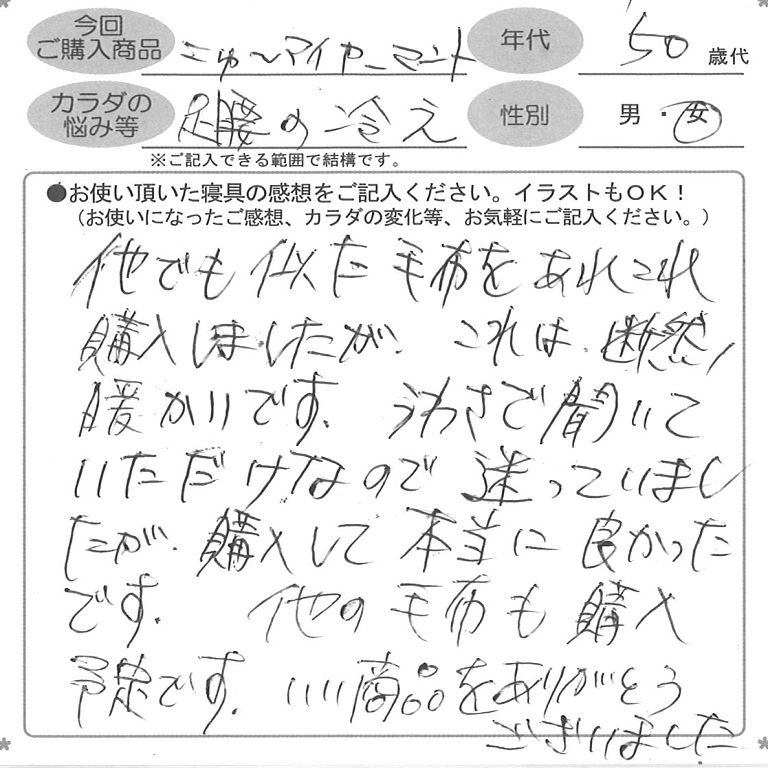 今回
ご購入商品 こゅ〜マイヤーマント 年代 50 歳代
カラダの
悩み等 足腰の冷え 性別 男・女
※ご記入できる範囲で結構です。
●お使い頂いた寝具の感想をご記入ください。イラストもOK！
（お使いになったご感想、カラダの変化等、お気軽にご記入ください。）
他でも似た毛布をあれこれ
購入しましたが、これは、断然
暖かいです。うわさで聞いて
いただけなので迷っていまし
たが、購入して本当に良かった
です。他の毛布も購入
予定です。いい商品をありがとう
ございました